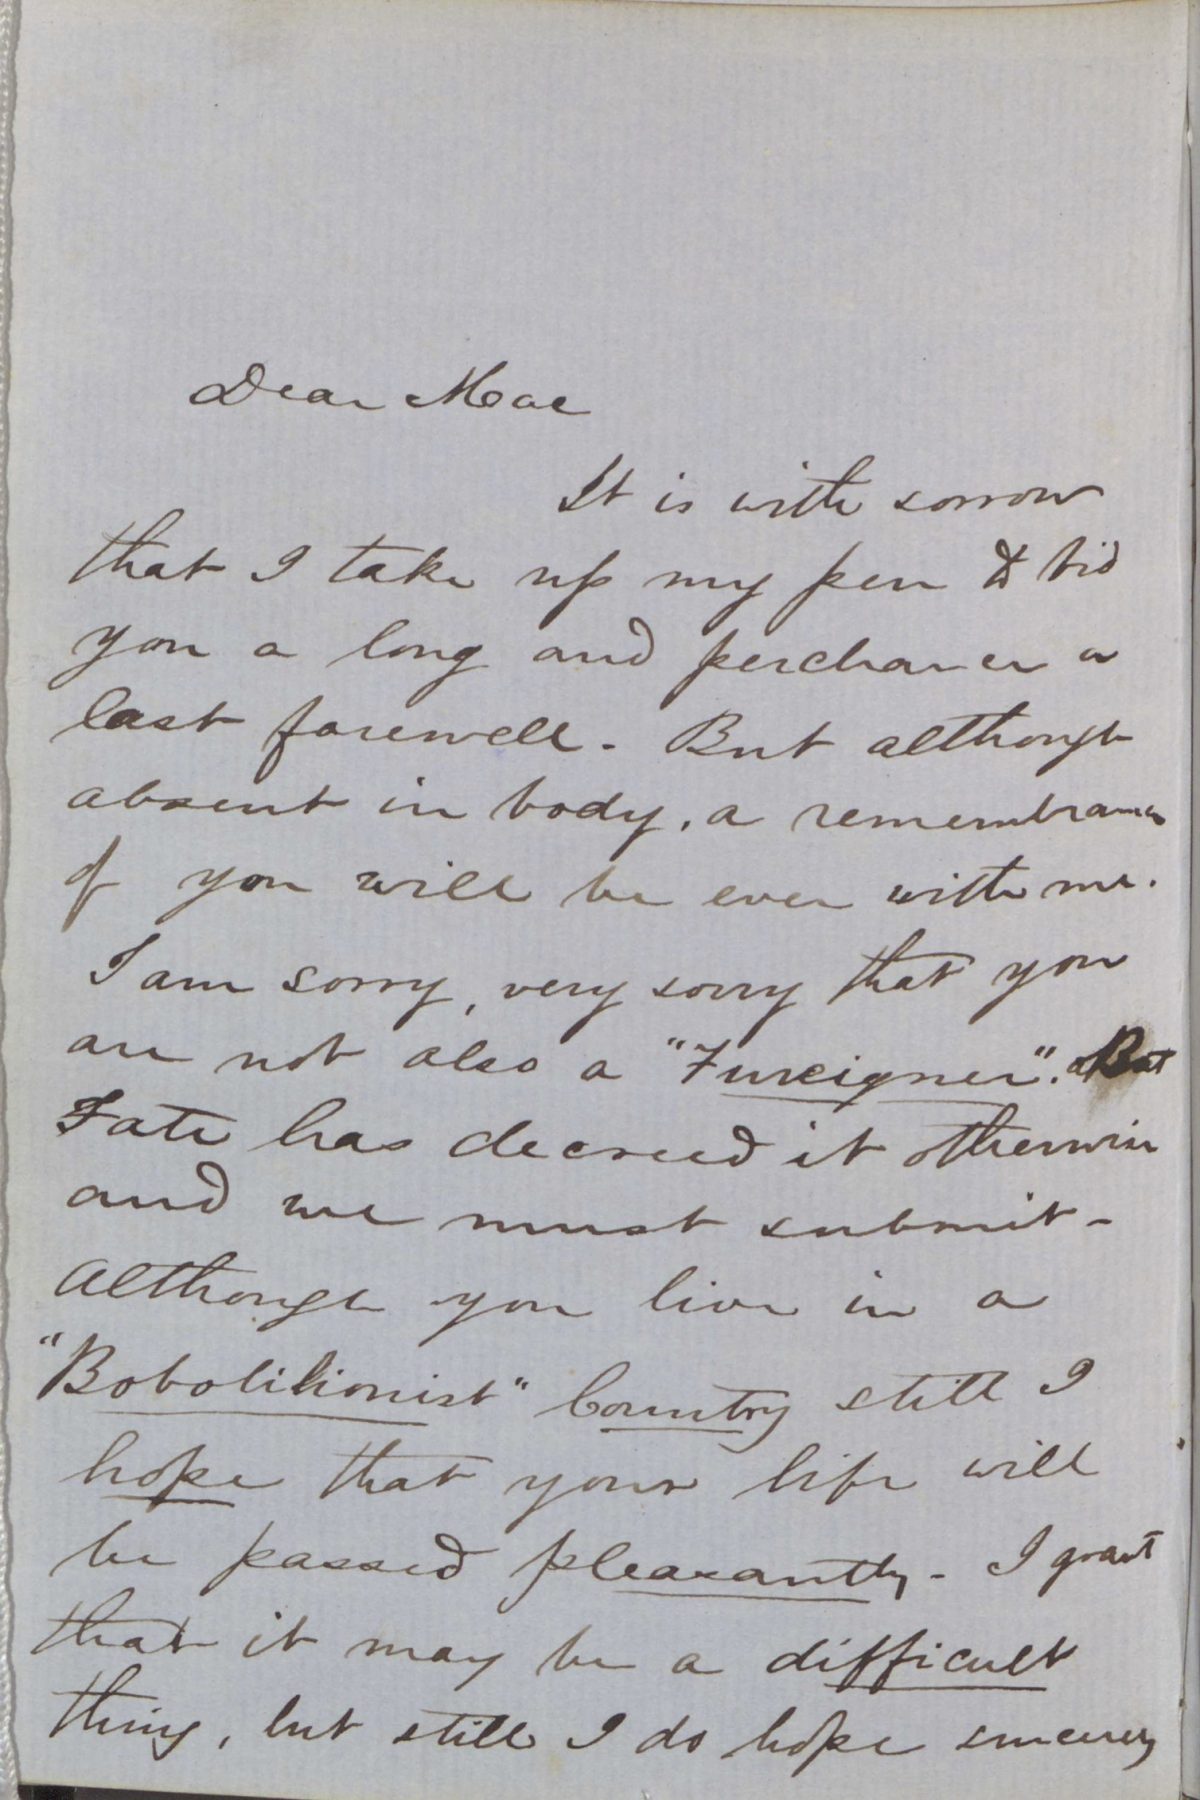 Dear Mac
It is with sorrow
that I take up my pen to bid
you a long and perchance a
last farewell. But although
absent in body, a remembrance
of you will be ever with me.
I am sorry, very sorry that you
are not also a "Fureigner". But
Fate has decreed it otherwise
and we must submit -
Although you live in a
"Bobolitionist" Country still I
hope that your life will
be passed pleasantly - I grant
that it may be a difficult
thing, but still I do hope sincerely